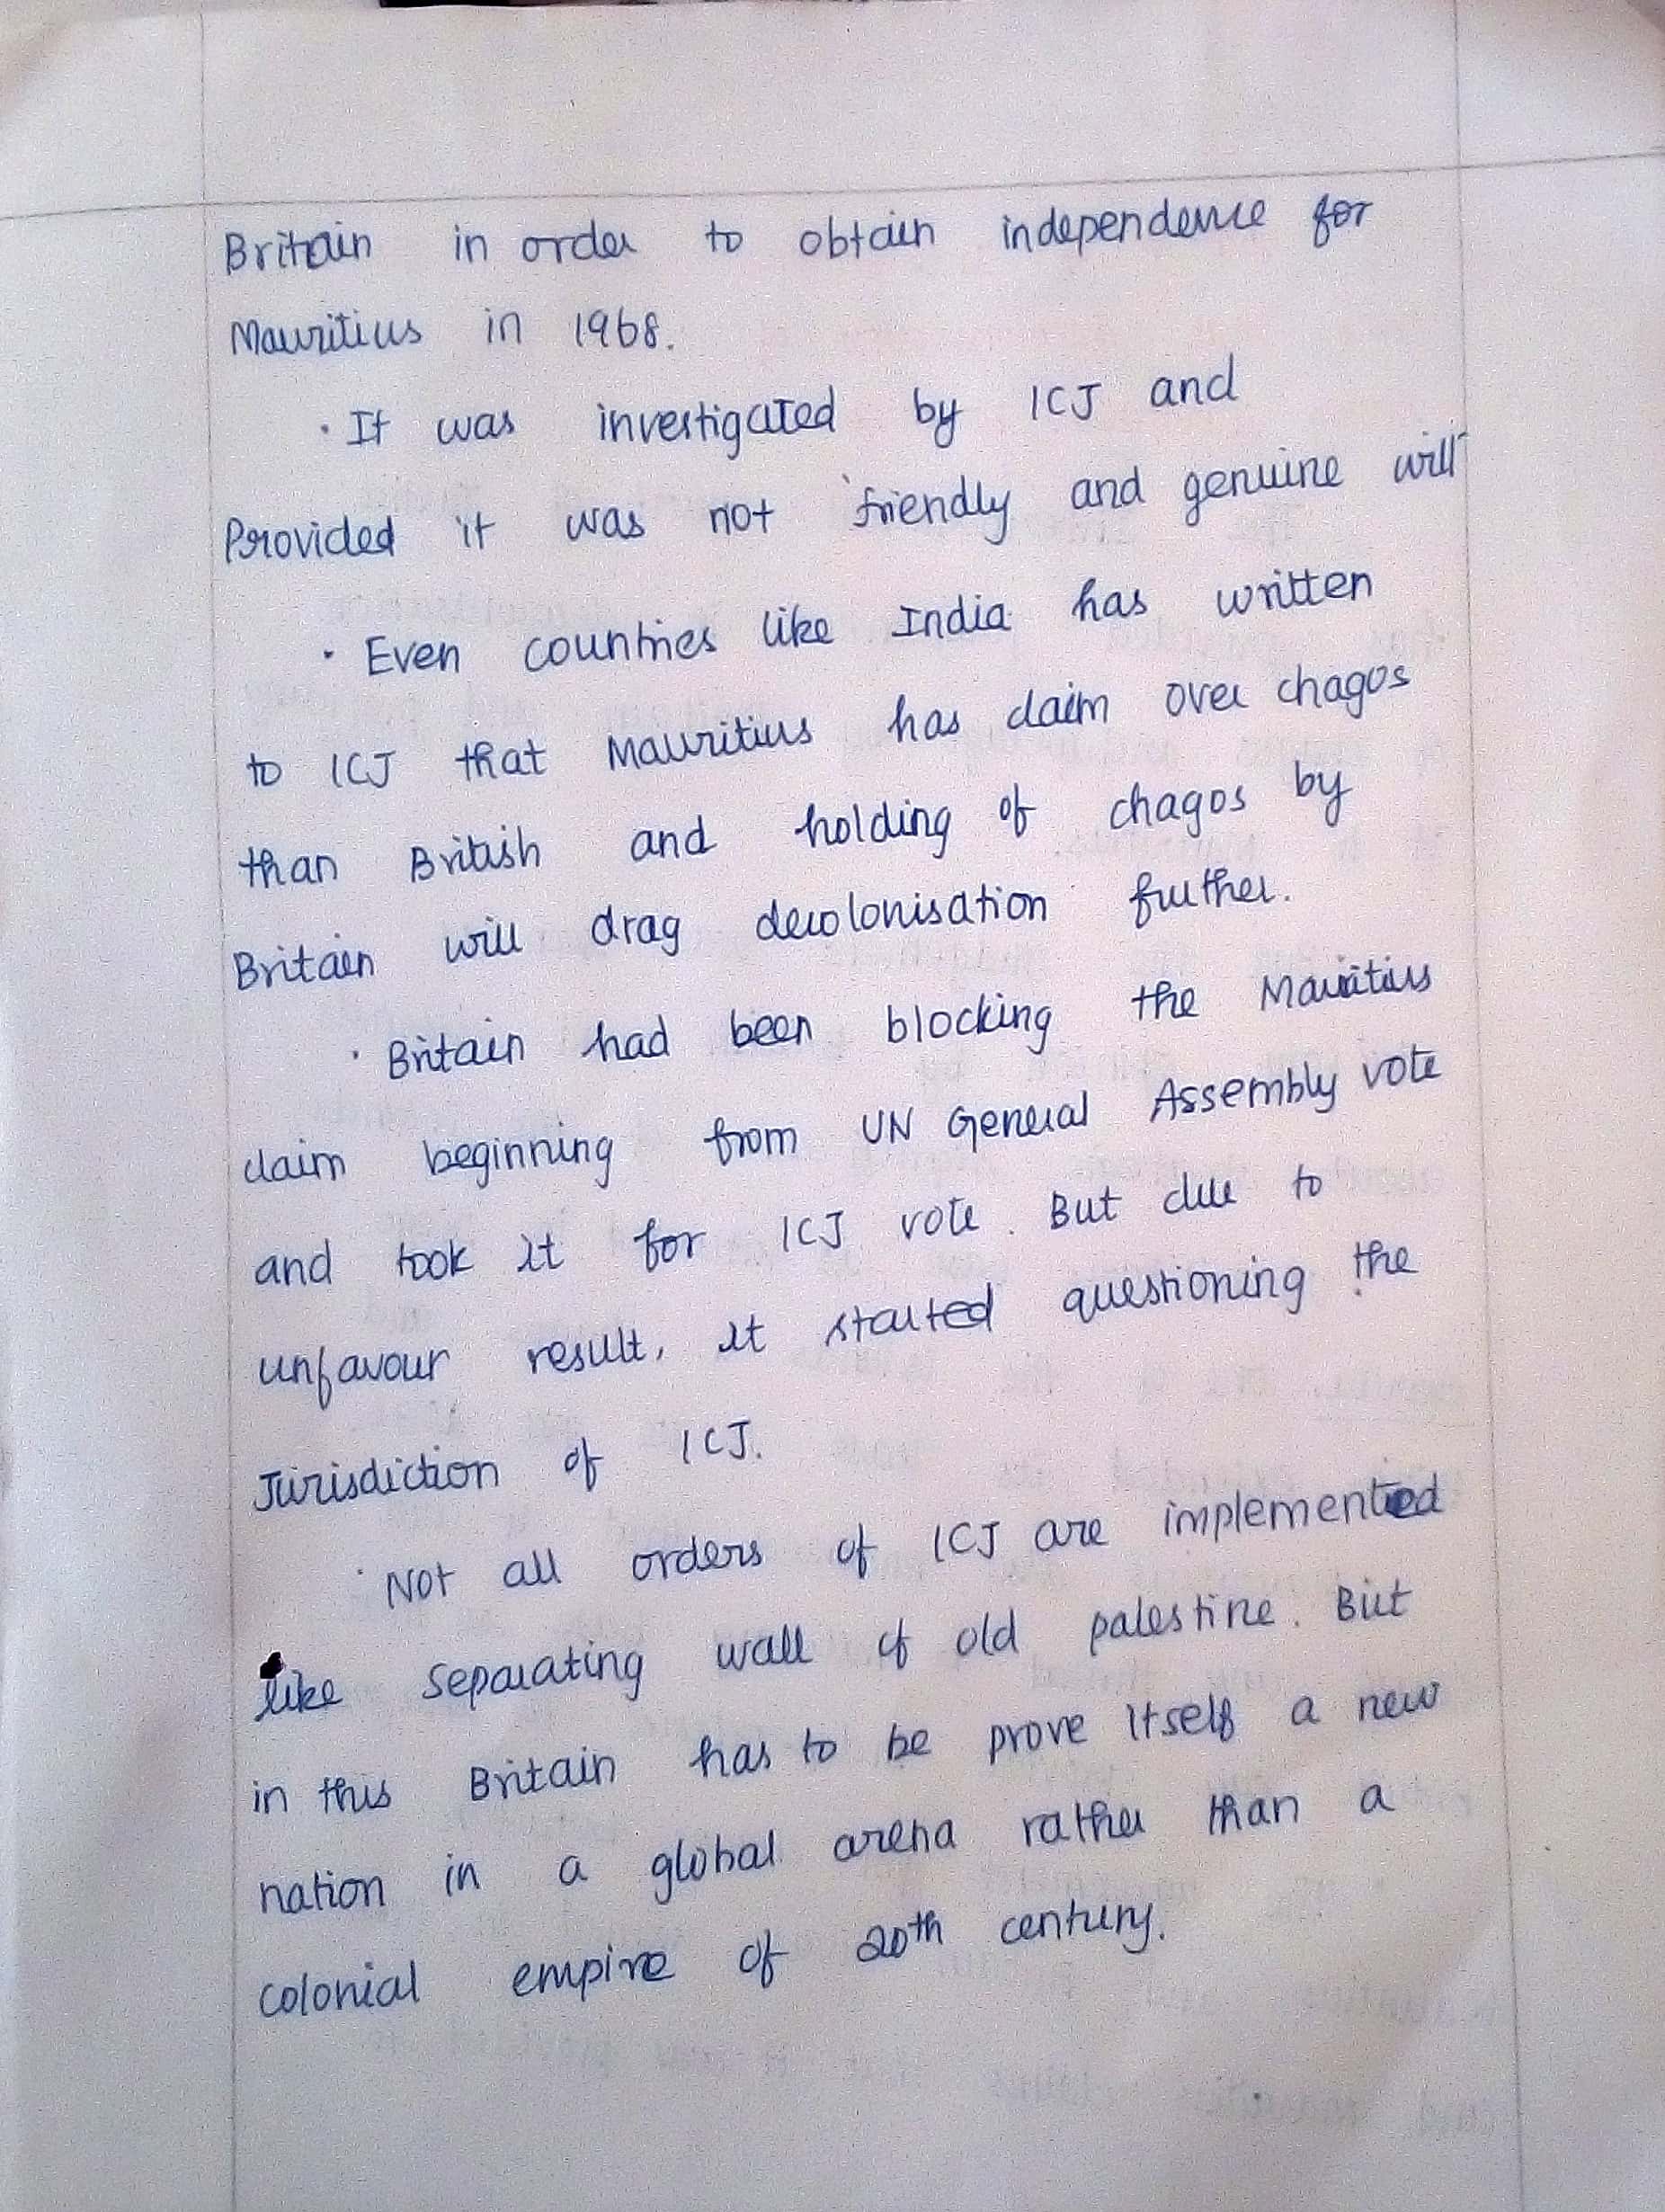 Britain in order to obtain independence for
Mauritius in 1968.
· It was investigated by ICJ and
Provided it was not friendly and genuine will
· Even countries like India has written
to ICJ that Mauritius has claim over chagos
than British and holding of chagos by
Britain will drag decolonisation further.
· Britain had been blocking the Mauritius
claim beginning from UN General Assembly vote
and took it for ICJ vote. But due to
unfavour result, it started questioning the
Jurisdiction of ICJ.
· Not all orders of ICJ are implemented
like separating wall of old palestine. But
in this Britain has to be prove itself a new
nation in a global arena rather than a
colonial empire of 20th century.